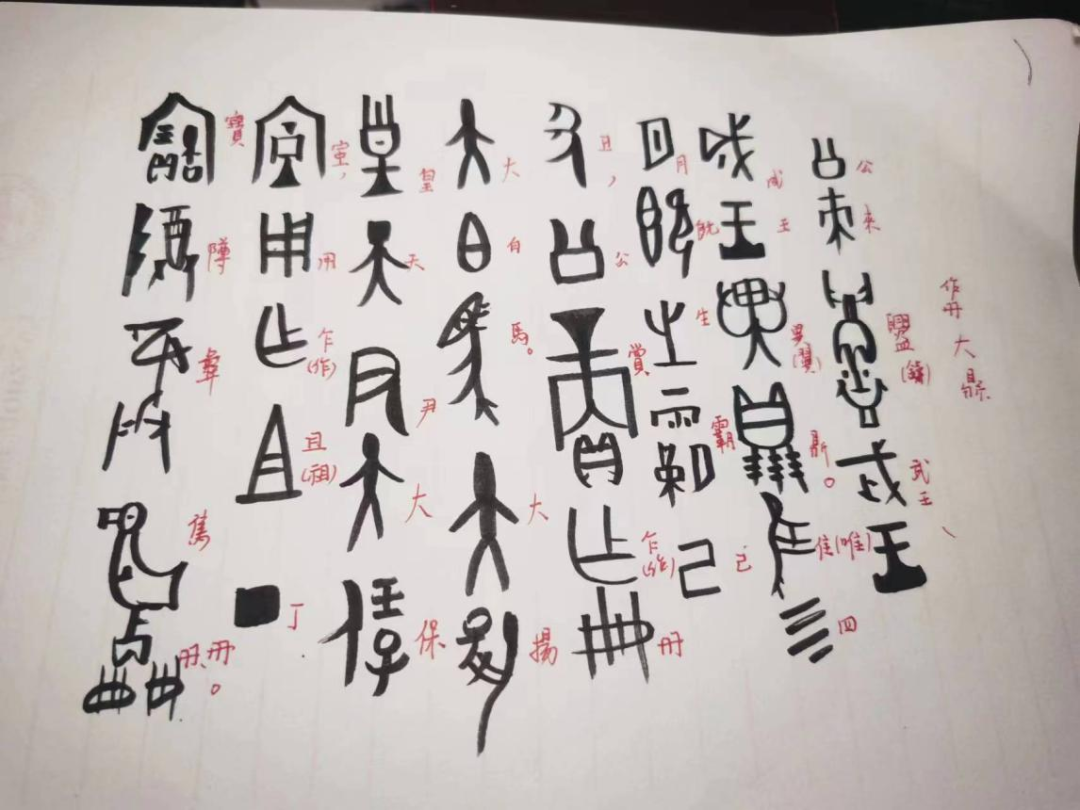 作冊大鼎
公來盨(鑄)武王、
成王異(翼)鼎。隹(唯)四
月既生霸己
丑,公賞乍(作)冊
大白馬。大揚
皇天尹大保
室,用乍(作)且(祖)丁
寶障彝雋冊冊。